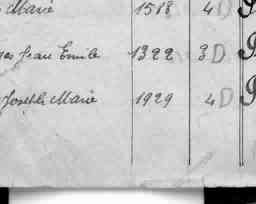 Marie 1518 4 D
es Jean Emile 1322 3 D
Joseph Marie 1929 4 D